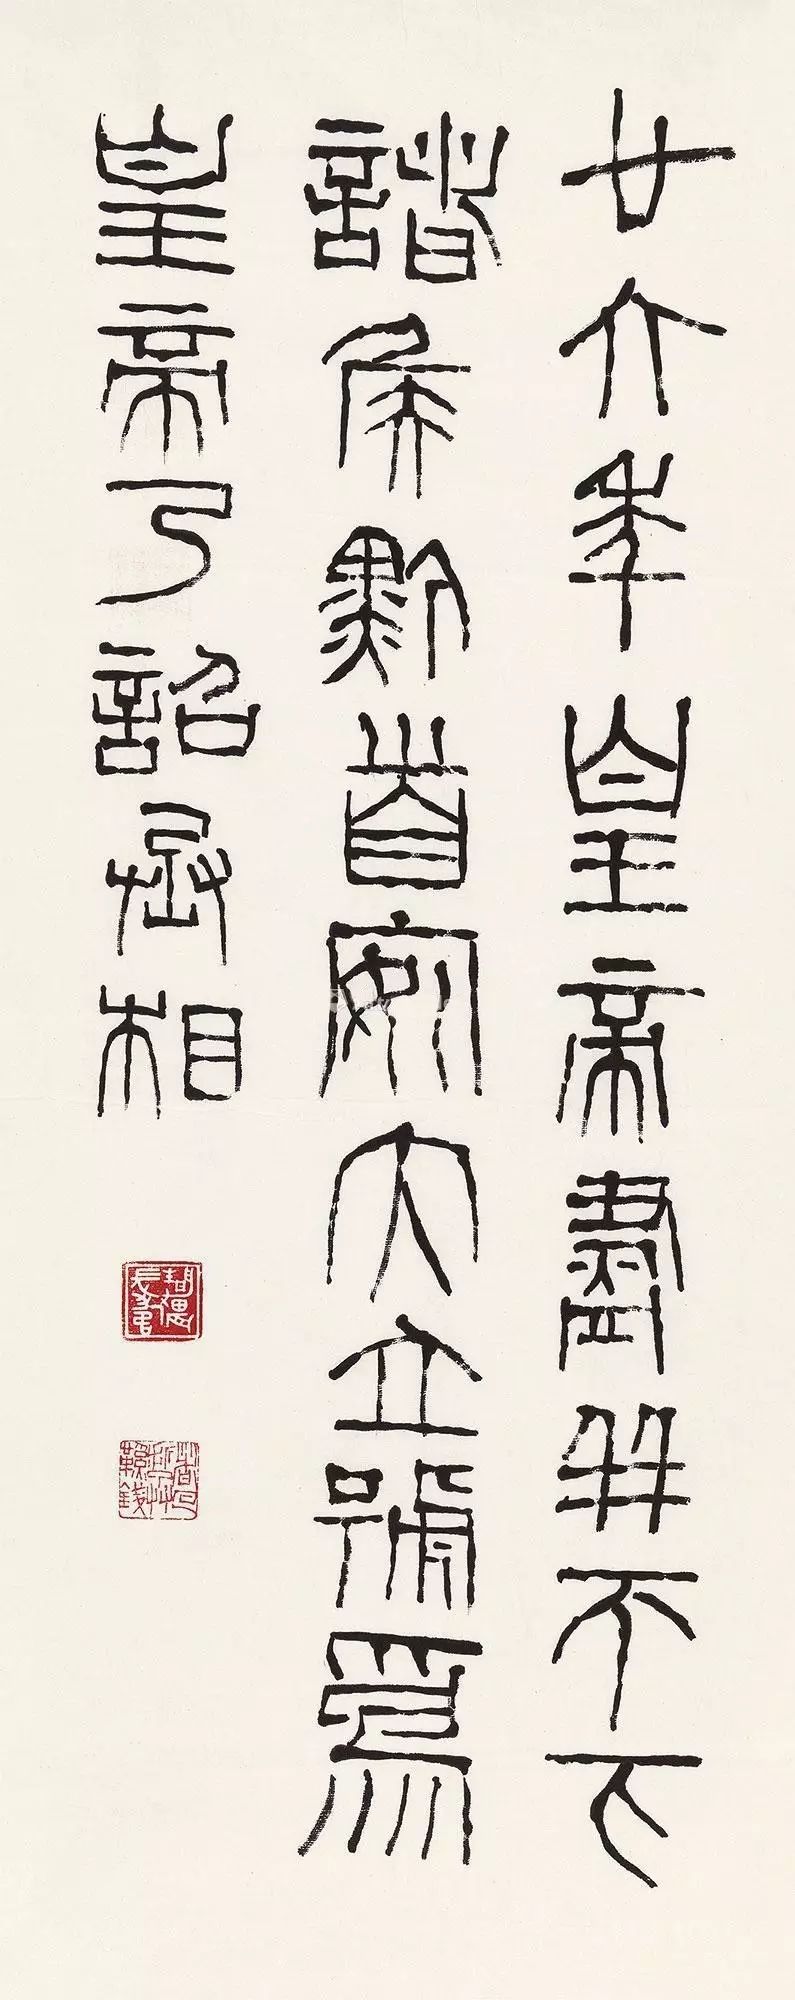 廿六年皇帝盡并天下
諸矦黔首安大立號爲
皇帝乃詔丞相